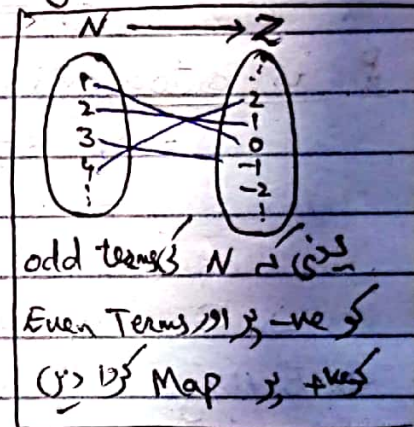 N → Z
1
2
3
4
⋮
⋮
2
1
0
-1
-2
⋮
یعنی کہ N کے odd terms
کو -ve پر اور Even Terms
کو +ve پر Map کروا دیں